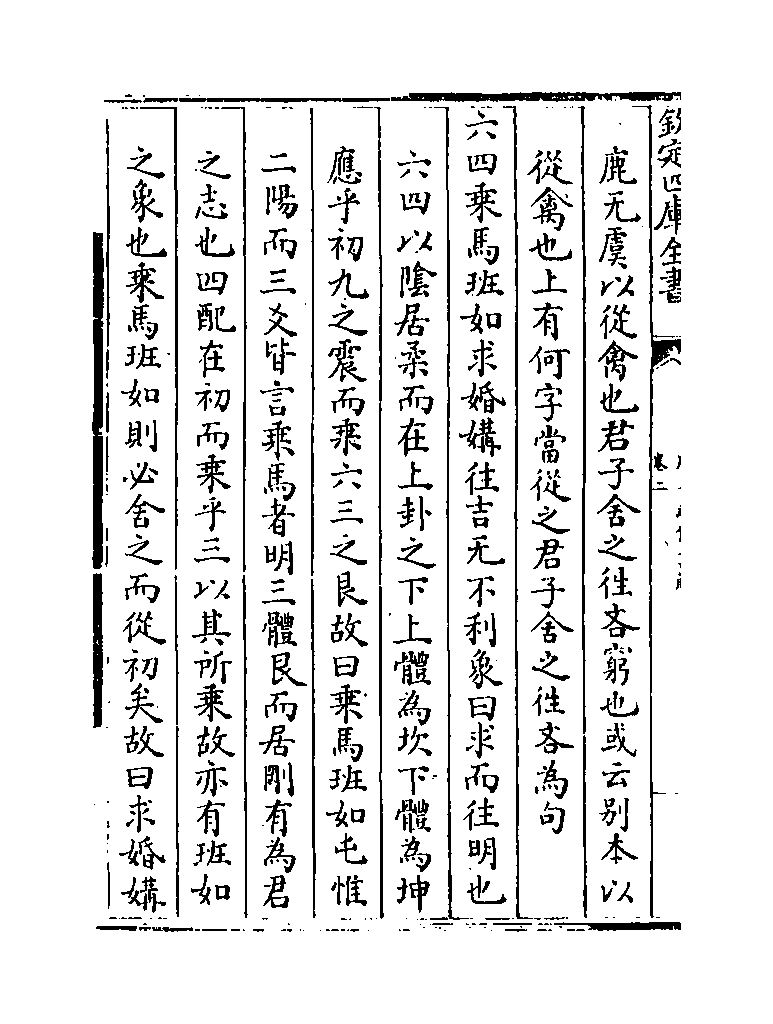 欽定四庫全書
卷二
鹿无虞以從禽也君子舍之往吝窮也或云别本以
從禽也上有何字當從之君子舍之往吝為句
六四乘馬班如求婚媾往吉无不利象曰求而往明也
六四以陰居柔而在上卦之下上體為坎下體為坤
應乎初九之震而乘六三之艮故曰乘馬班如屯惟
二陽而三爻皆言乘馬者明三體艮而居剛有為君
之志也四配在初而乘乎三以其所乘故亦有班如
之象也乘馬班如則必舍之而從初矣故曰求婚媾